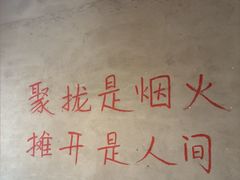 聚拢是烟火
摊开是人间